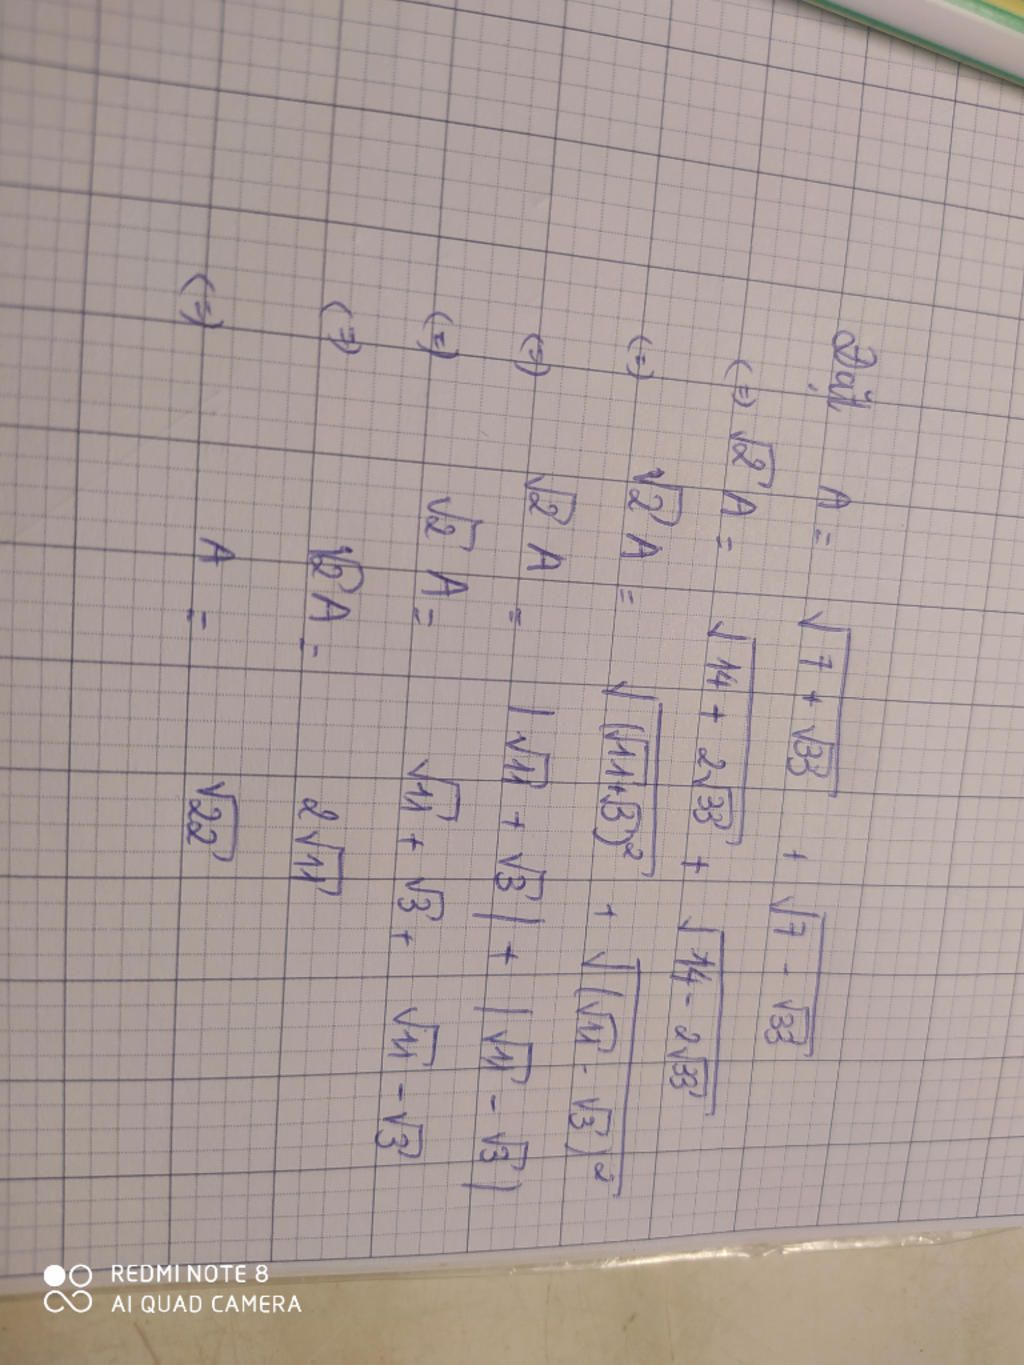 Đặt A = √(7 + √33) + √(7 - √33)
(=) √2 A = √(14 + 2√33) + √(14 - 2√33)
(=) √2 A = √((√11+√3)²) + √((√11 - √3)²)
(=) √2 A = |√11 + √3| + |√11 - √3|
(=) √2 A = √11 + √3 + √11 - √3
(=) √2 A = 2√11
(=) A = √22
REDMI NOTE 8
AI QUAD CAMERA